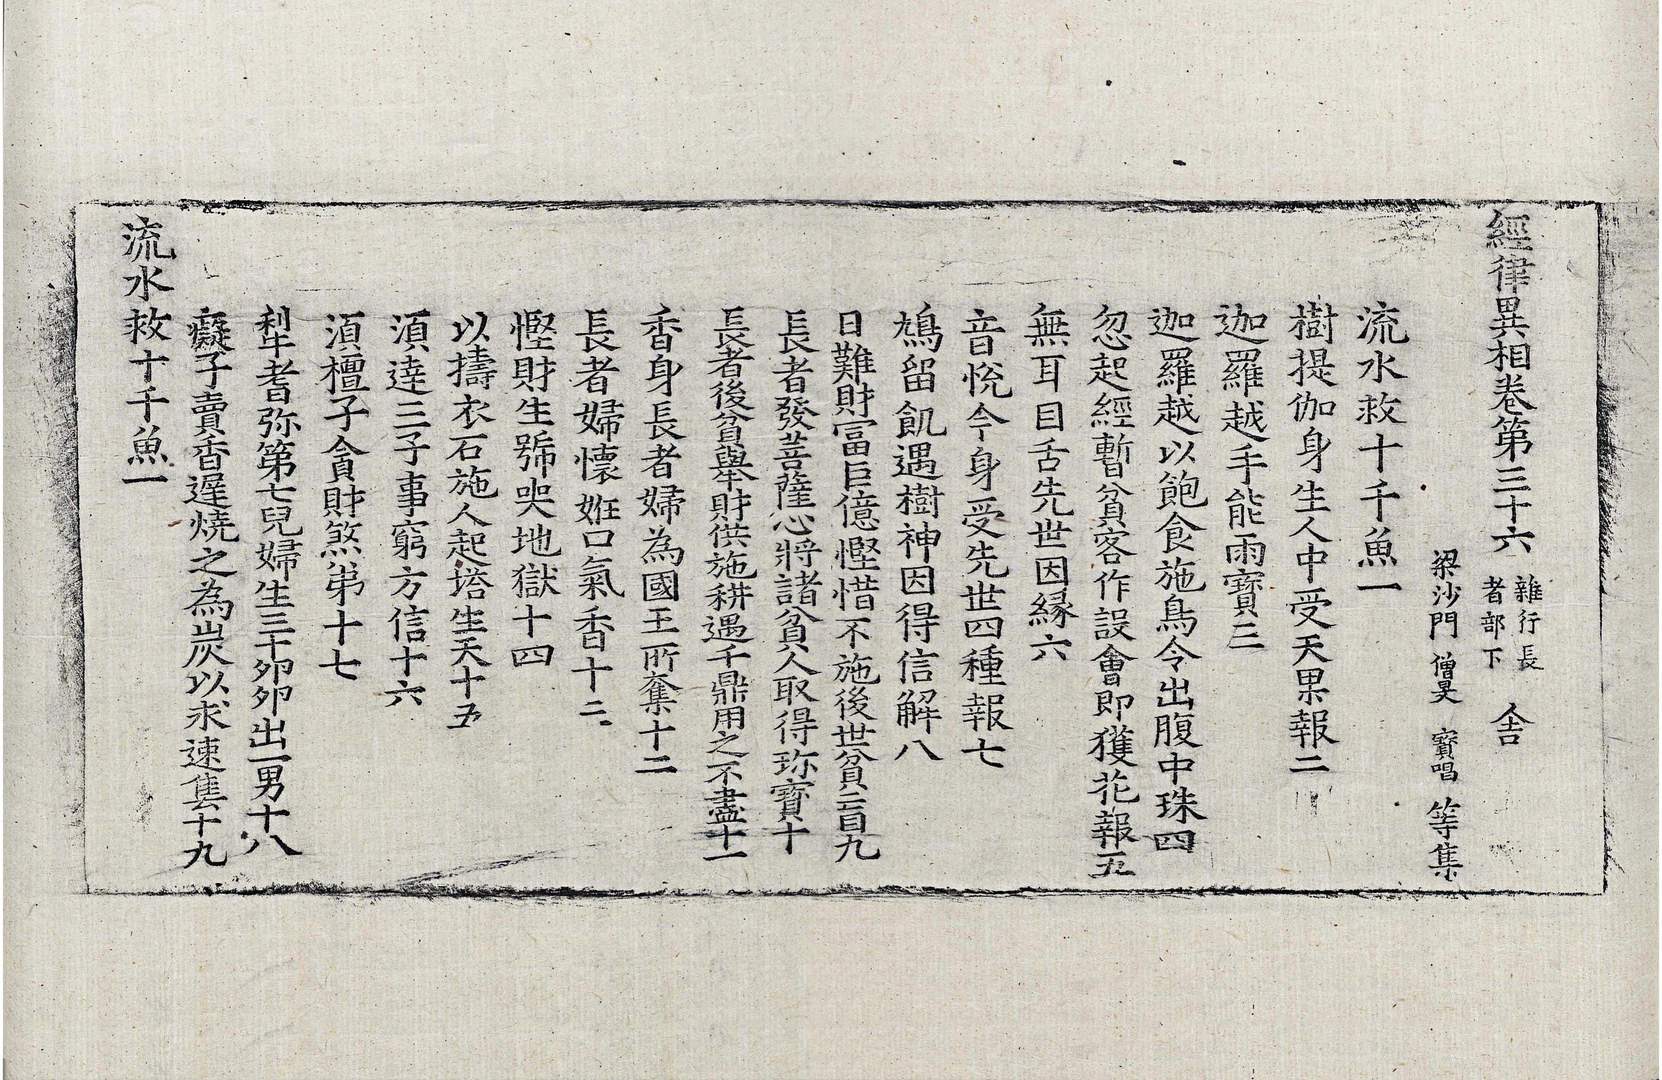 經律異相卷第三十六 雜行長者部下 舍
梁沙門 僧旻 寶唱 等集
流水救十千魚一
樹提伽身生人中受天果報二
迦羅越手能雨寶三
迦羅越以飽食施鳥令出腹中珠四
忽起經暫貧客作設會即獲花報五
無耳目舌先世因緣六
音悅今身受先世四種報七
鳩留飢遇樹神因得信解八
日難財富巨億慳惜不施後世貧盲九
長者發菩薩心將諸貧人取得珎寶十
長者後貧舉財供施耕遇千鼎用之不盡十一
香身長者婦為國王所奪十二
長者婦懷姙口氣香十三
慳財生號哭地獄十四
以擣衣石施人起塔生天十五
湏達三子事窮方信十六
湏檀子貪財煞弟十七
犁耆弥第七兒婦生三十卵卵出一男十八
癡子賣香遲燒之為炭以求速售十九
流水救十千魚一